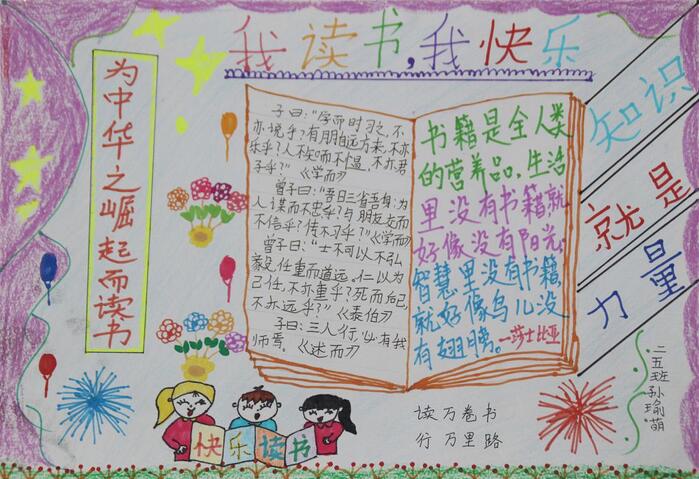 我读书，我快乐
为中华之崛起而读书
子曰：“学而时习之，不
亦说乎？有朋自远方来，不亦
乐乎？人不知而不愠，不亦君
子乎？”《学而》
曾子曰：“吾日三省吾身：为
人谋而不忠乎？与朋友交而
不信乎？传不习乎？”《学而》
曾子曰：“士不可以不弘
毅，任重而道远。仁以为
己任，不亦重乎？死而后已，
不亦远乎？”《泰伯》
子曰：三人行，必有我
师焉。《述而》
书籍是全人类
的营养品，生活
里没有书籍，就
好像没有阳光；
智慧里没有书籍，
就好像鸟儿没
有翅膀。—莎士比亚
知识
就是
力量
快乐读书
读万卷书
行万里路
二五班孙瑜萌